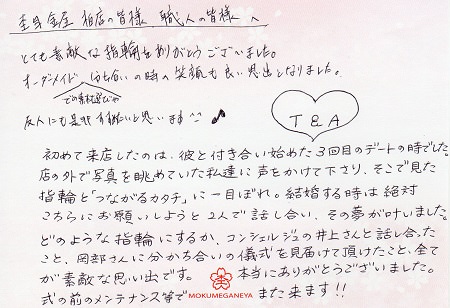 杢目金屋 柏店の皆様 職人の皆様 へ
とても素敵な指輪をありがとうございました。
オーダーメイド 分ち合いの時の笑顔も良い思出となりました。
での素材選びや
友人にも是非すすめたいと思います^^♪
T & A
初めて来店したのは、彼と付き合い始めた3回目のデートの時でした。
店の外で写真を眺めていた私達に声をかけて下さり、そこで見た
指輪と「つながるカタチ」に一目ぼれ。結婚する時は絶対
こちらにお願いしようと2人で話し合い、その夢が叶いました。
どのような指輪にするか、コンシェルジュの井上さんと話し合った
こと、岡部さんに分かち合いの儀式を見届けて頂けたこと、全て
が素敵な思い出です。 本当にありがとうございました。
式の前のメンテナンス等で また来ます!!
MOKUMEGANEYA